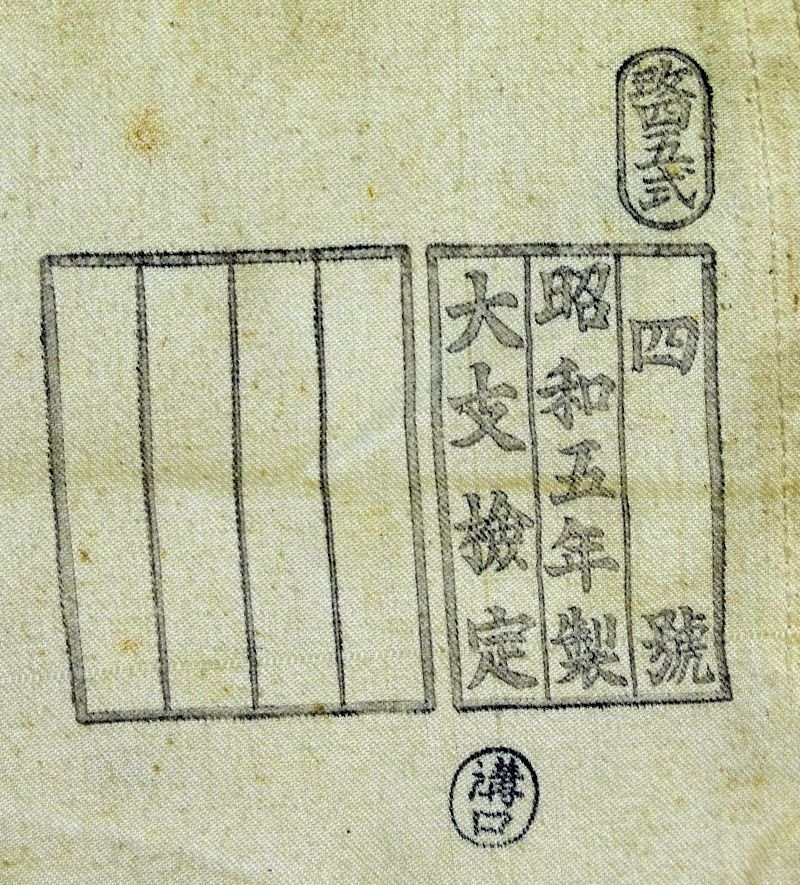 改四五式
四號
昭和五年製
大支檢定
溝口